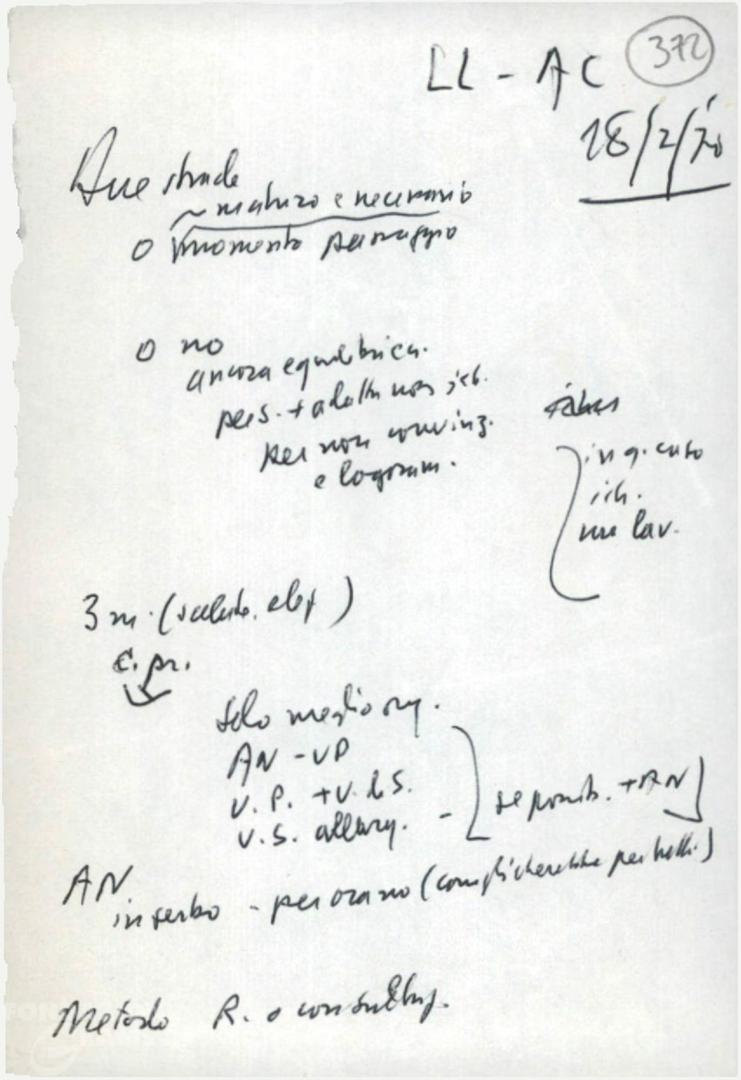 LL - AC 372
18/2/70
Due strade
~ maturo e necessario
o momento passaggio
o no
ancora equilibrica.
pers. + adatta non ich.
per non convinz.
e logoram.
in q. caso
ich.
mu lav.
3 m. ( )
C. pr.
Solo meglio org.
AN - VP
V. P. + V. d S.
V.S. allarg. - se possib. + AN
AN
in serbo - per ora no (complicherebbe per )
Metodo R. o consulting.